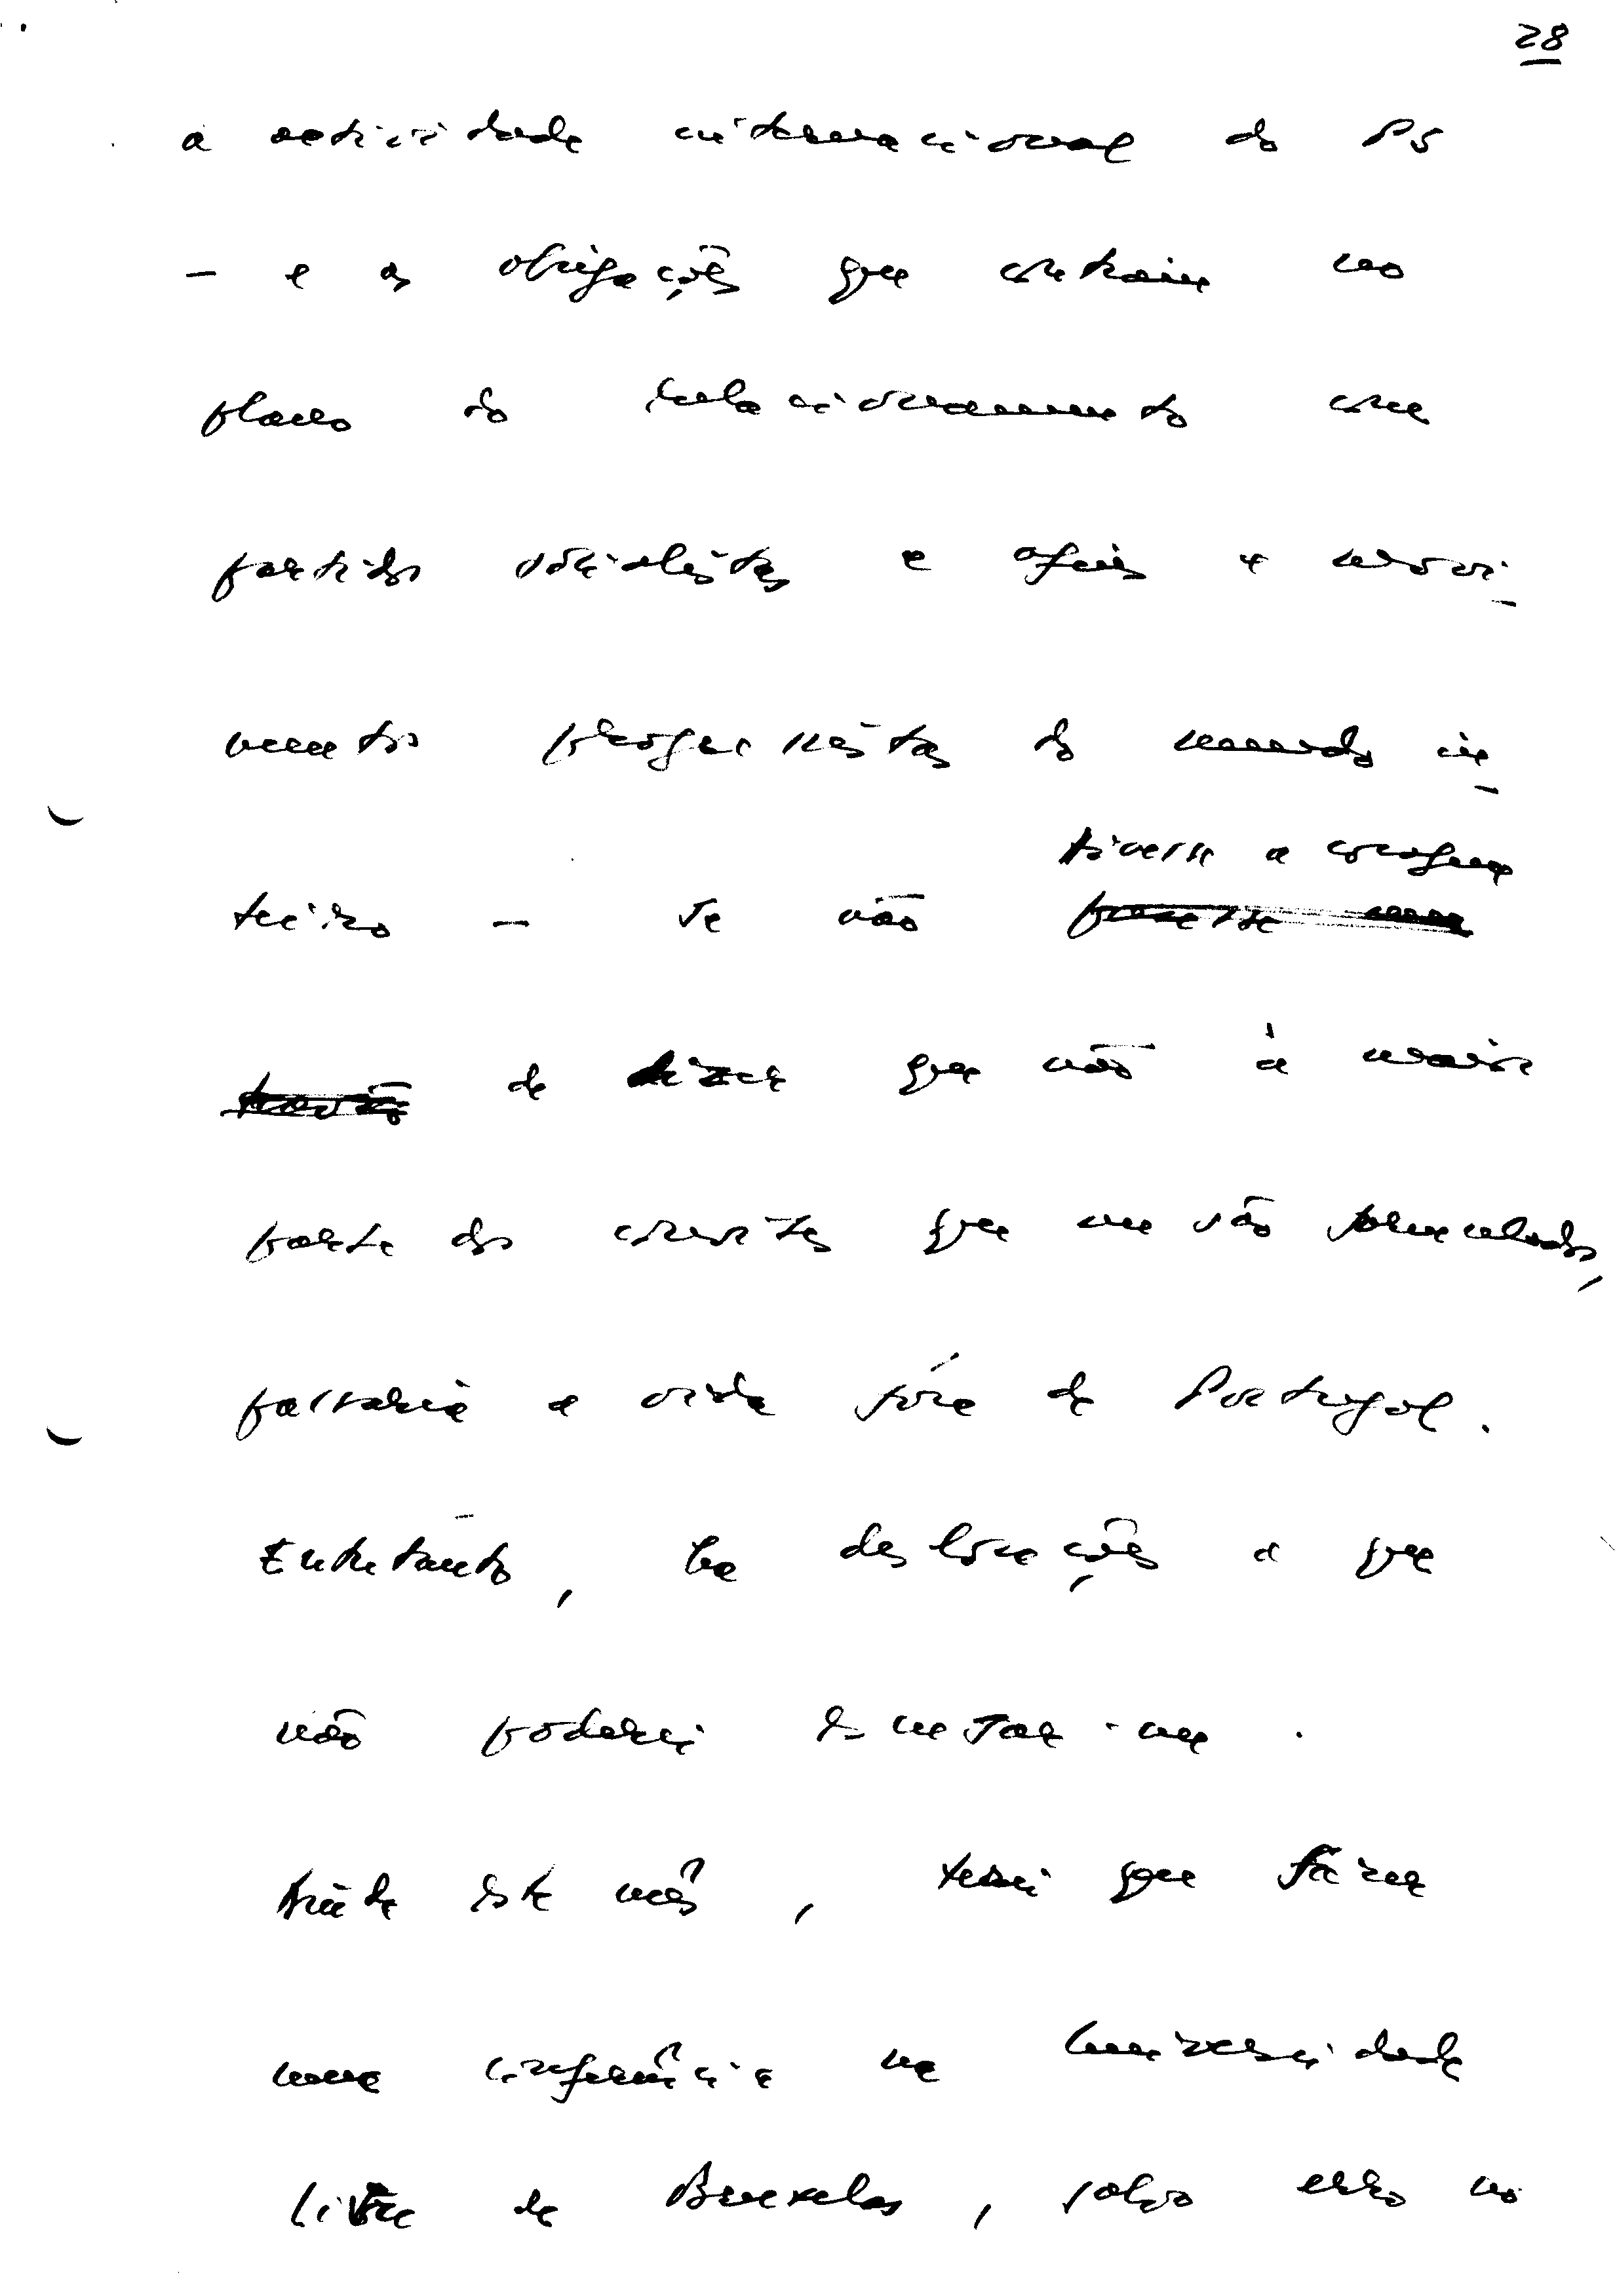 28
a actividade internacional do PS
— e as obrigações que contraiu no
plano do relacionamento com
partidos socialistas e afins e movi-
mentos progressistas do mundo in-
tivesse a coragem
teiro — se não fizesse uma
de dizer que não à maior
parte dos convites que me são formulados,
passaria a vida fóra de Portugal.
Entretanto, há deslocações a que
não poderei furtar-me.
Ainda este mês, terei que fazer
uma conferência na Universidade
Livre de Bruxelas, salvo erro no